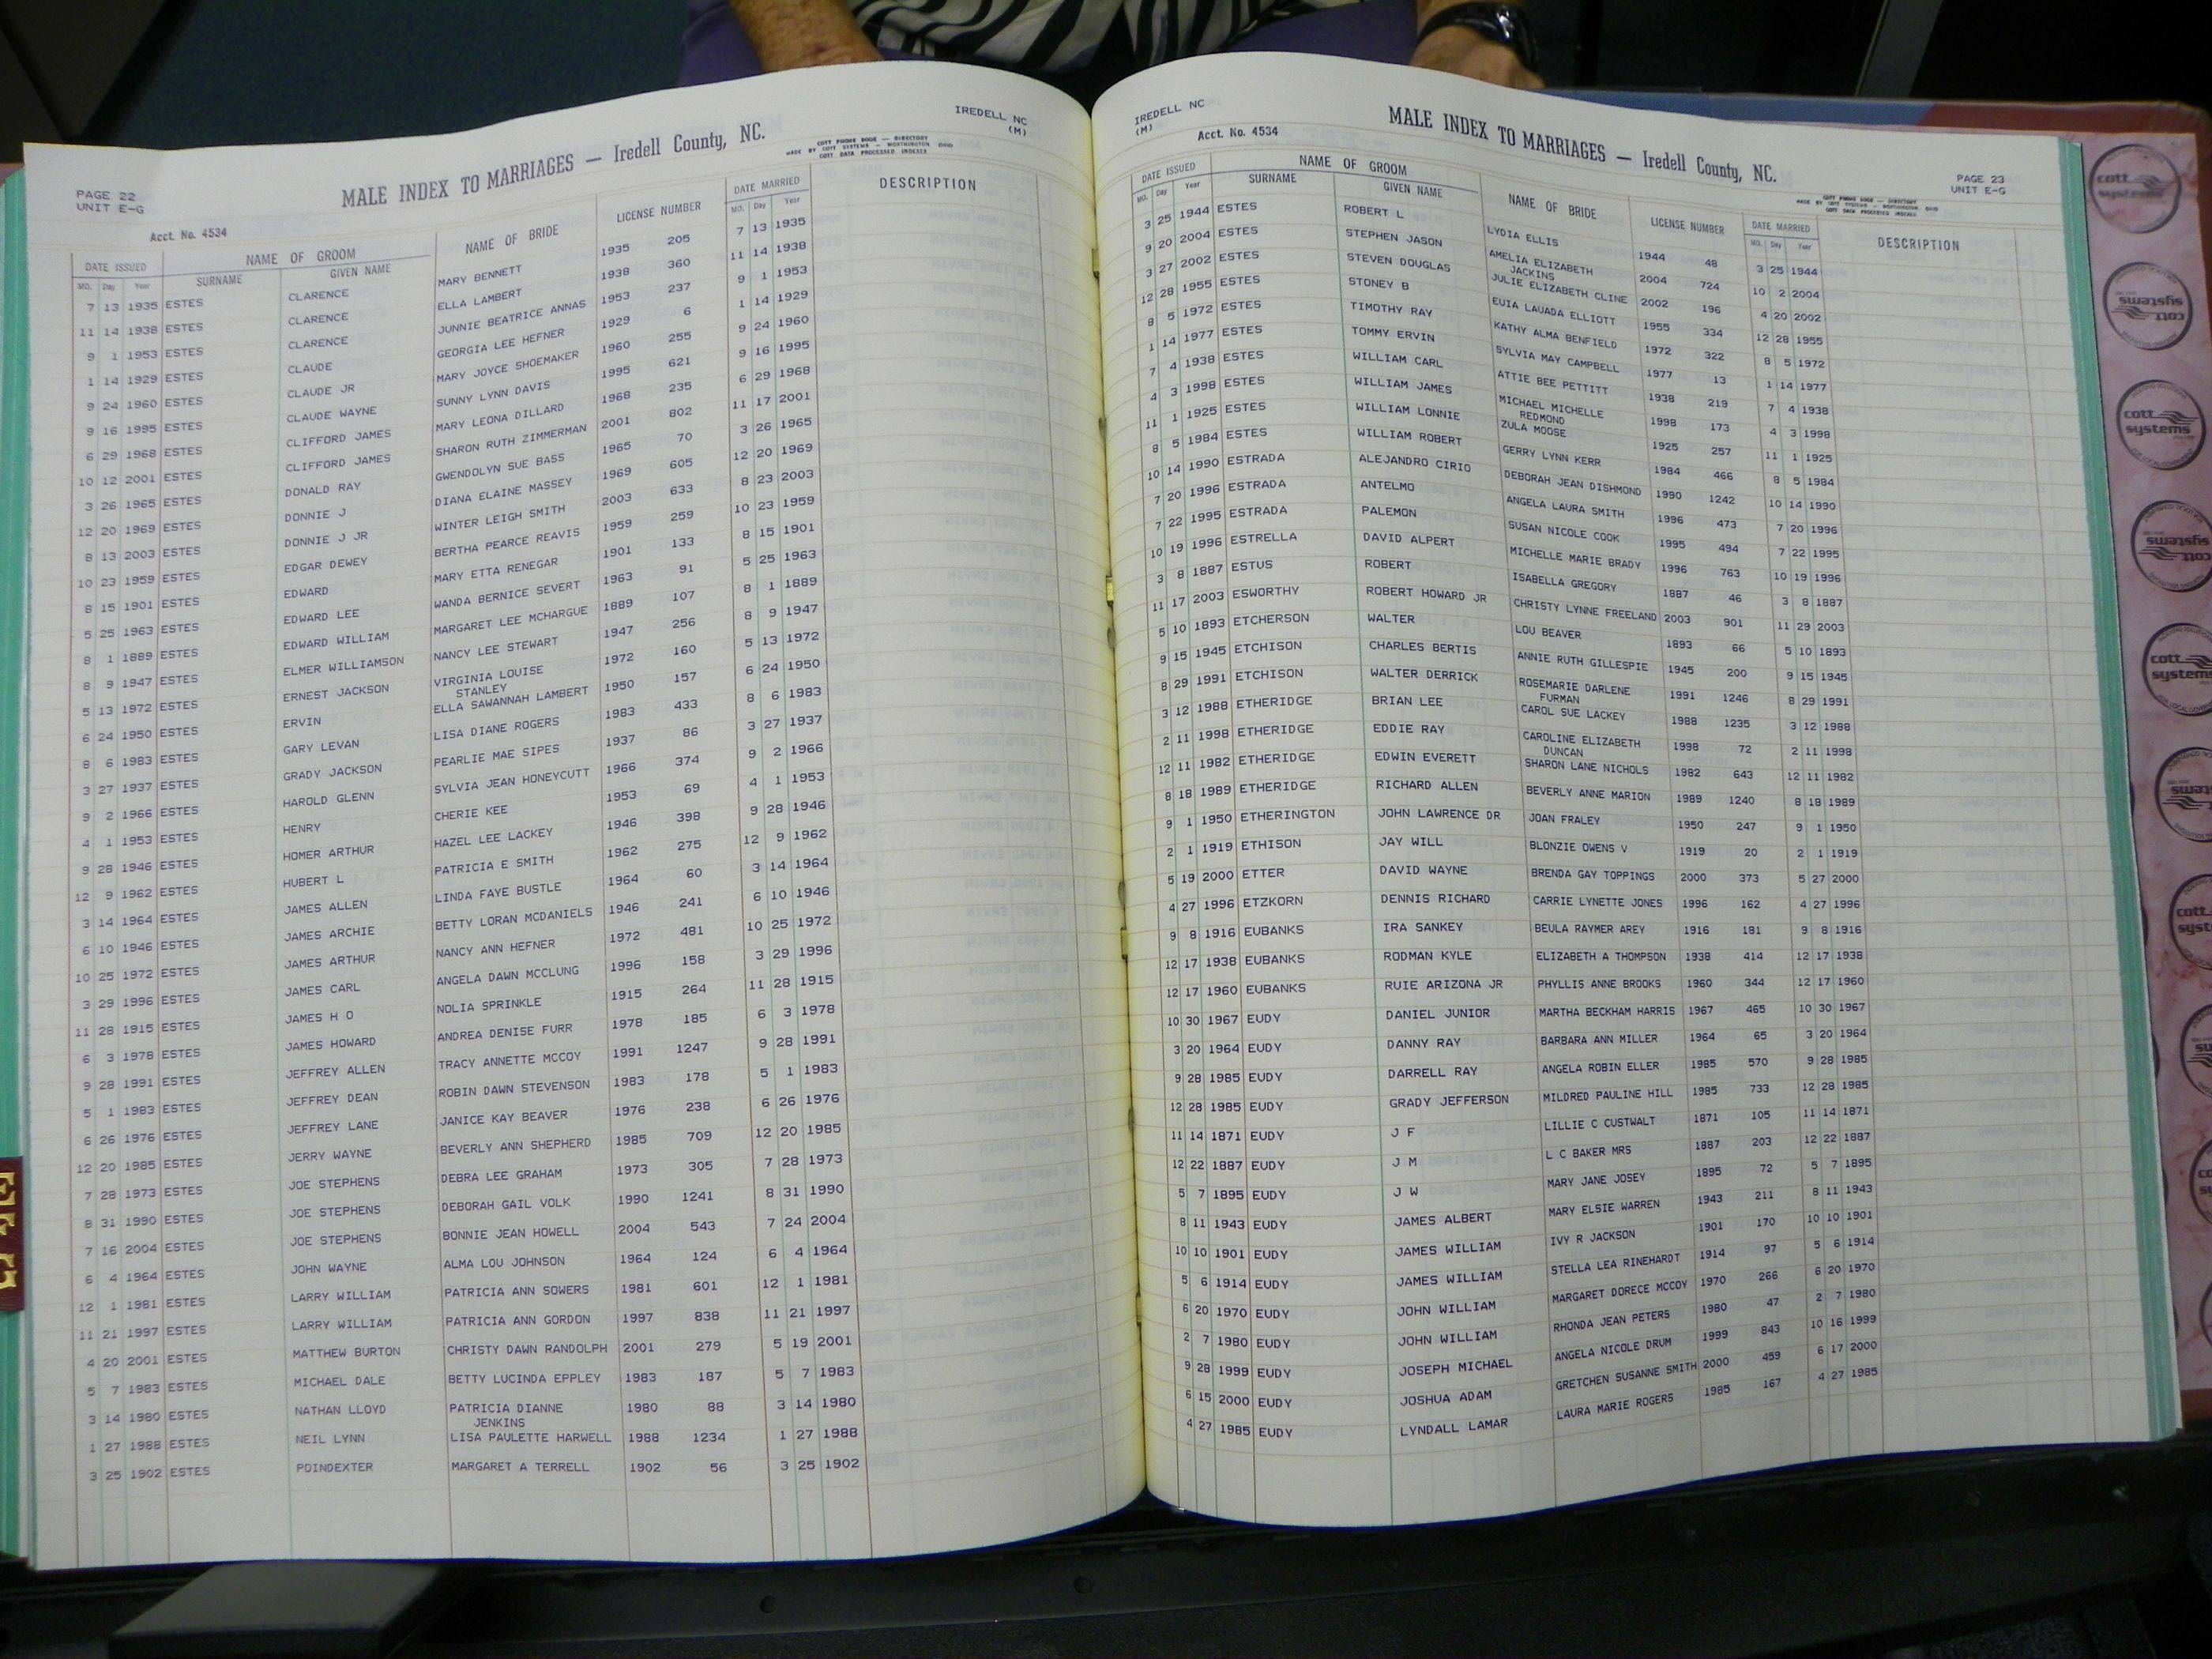 IREDELL NC
(M)
PAGE 22
UNIT E-G
MALE INDEX TO MARRIAGES — Iredell County, NC.
COTT PHONE BOOK — DIRECTORY
MADE BY COTT SYSTEMS — WORTHINGTON OHIO
COTT DATA PROCESSED INDEXES
Acct. No. 4534
DATE ISSUED NAME OF GROOM NAME OF BRIDE LICENSE NUMBER DATE MARRIED DESCRIPTION
MO. Day Year SURNAME GIVEN NAME MO. Day Year
7 13 1935 ESTES CLARENCE MARY BENNETT 1935 205 7 13 1935
11 14 1938 ESTES CLARENCE ELLA LAMBERT 1938 360 11 14 1938
9 1 1953 ESTES CLARENCE JUNNIE BEATRICE ANNAS 1953 237 9 1 1953
1 14 1929 ESTES CLAUDE GEORGIA LEE HEFNER 1929 6 1 14 1929
9 24 1960 ESTES CLAUDE JR MARY JOYCE SHOEMAKER 1960 255 9 24 1960
9 16 1995 ESTES CLAUDE WAYNE SUNNY LYNN DAVIS 1995 621 9 16 1995
6 29 1968 ESTES CLIFFORD JAMES MARY LEONA DILLARD 1968 235 6 29 1968
10 12 2001 ESTES CLIFFORD JAMES SHARON RUTH ZIMMERMAN 2001 802 11 17 2001
3 26 1965 ESTES DONALD RAY GWENDOLYN SUE BASS 1965 70 3 26 1965
12 20 1969 ESTES DONNIE J DIANA ELAINE MASSEY 1969 605 12 20 1969
8 13 2003 ESTES DONNIE J JR WINTER LEIGH SMITH 2003 633 8 23 2003
10 23 1959 ESTES EDGAR DEWEY BERTHA PEARCE REAVIS 1959 259 10 23 1959
8 15 1901 ESTES EDWARD MARY ETTA RENEGAR 1901 133 8 15 1901
5 25 1963 ESTES EDWARD LEE WANDA BERNICE SEVERT 1963 91 5 25 1963
8 1 1889 ESTES EDWARD WILLIAM MARGARET LEE MCHARGUE 1889 107 8 1 1889
8 9 1947 ESTES ELMER WILLIAMSON NANCY LEE STEWART 1947 256 8 9 1947
5 13 1972 ESTES ERNEST JACKSON VIRGINIA LOUISE 1972 160 5 13 1972
STANLEY
6 24 1950 ESTES ERVIN ELLA SAWANNAH LAMBERT 1950 157 6 24 1950
8 6 1983 ESTES GARY LEVAN LISA DIANE ROGERS 1983 433 8 6 1983
3 27 1937 ESTES GRADY JACKSON PEARLIE MAE SIPES 1937 86 3 27 1937
9 2 1966 ESTES HAROLD GLENN SYLVIA JEAN HONEYCUTT 1966 374 9 2 1966
4 1 1953 ESTES HENRY CHERIE KEE 1953 69 4 1 1953
9 28 1946 ESTES HOMER ARTHUR HAZEL LEE LACKEY 1946 398 9 28 1946
12 9 1962 ESTES HUBERT L PATRICIA E SMITH 1962 275 12 9 1962
3 14 1964 ESTES JAMES ALLEN LINDA FAYE BUSTLE 1964 60 3 14 1964
6 10 1946 ESTES JAMES ARCHIE BETTY LORAN MCDANIELS 1946 241 6 10 1946
10 25 1972 ESTES JAMES ARTHUR NANCY ANN HEFNER 1972 481 10 25 1972
3 29 1996 ESTES JAMES CARL ANGELA DAWN MCCLUNG 1996 158 3 29 1996
11 28 1915 ESTES JAMES H O NOLIA SPRINKLE 1915 264 11 28 1915
6 3 1978 ESTES JAMES HOWARD ANDREA DENISE FURR 1978 185 6 3 1978
9 28 1991 ESTES JEFFREY ALLEN TRACY ANNETTE MCCOY 1991 1247 9 28 1991
5 1 1983 ESTES JEFFREY DEAN ROBIN DAWN STEVENSON 1983 178 5 1 1983
6 26 1976 ESTES JEFFREY LANE JANICE KAY BEAVER 1976 238 6 26 1976
12 20 1985 ESTES JERRY WAYNE BEVERLY ANN SHEPHERD 1985 709 12 20 1985
7 28 1973 ESTES JOE STEPHENS DEBRA LEE GRAHAM 1973 305 7 28 1973
8 31 1990 ESTES JOE STEPHENS DEBORAH GAIL VOLK 1990 1241 8 31 1990
7 16 2004 ESTES JOE STEPHENS BONNIE JEAN HOWELL 2004 543 7 24 2004
6 4 1964 ESTES JOHN WAYNE ALMA LOU JOHNSON 1964 124 6 4 1964
12 1 1981 ESTES LARRY WILLIAM PATRICIA ANN SOWERS 1981 601 12 1 1981
11 21 1997 ESTES LARRY WILLIAM PATRICIA ANN GORDON 1997 838 11 21 1997
4 20 2001 ESTES MATTHEW BURTON CHRISTY DAWN RANDOLPH 2001 279 5 19 2001
5 7 1983 ESTES MICHAEL DALE BETTY LUCINDA EPPLEY 1983 187 5 7 1983
3 14 1980 ESTES NATHAN LLOYD PATRICIA DIANNE 1980 88 3 14 1980
JENKINS
1 27 1988 ESTES NEIL LYNN LISA PAULETTE HARWELL 1988 1234 1 27 1988
3 25 1902 ESTES POINDEXTER MARGARET A TERRELL 1902 56 3 25 1902
EFG
IREDELL NC
(M)
Acct. No. 4534
MALE INDEX TO MARRIAGES — Iredell County, NC.
PAGE 23
UNIT E-G
COTT PHONE BOOK — DIRECTORY
MADE BY COTT SYSTEMS — WORTHINGTON OHIO
COTT DATA PROCESSED INDEXES
DATE ISSUED NAME OF GROOM NAME OF BRIDE LICENSE NUMBER DATE MARRIED DESCRIPTION
MO. Day Year SURNAME GIVEN NAME MO. Day Year
3 25 1944 ESTES ROBERT L LYDIA ELLIS 1944 48 3 25 1944
9 20 2004 ESTES STEPHEN JASON AMELIA ELIZABETH 2004 724 10 2 2004
JACKINS
3 27 2002 ESTES STEVEN DOUGLAS JULIE ELIZABETH CLINE 2002 196 4 20 2002
12 28 1955 ESTES STONEY B EUIA LAUADA ELLIOTT 1955 334 12 28 1955
8 5 1972 ESTES TIMOTHY RAY KATHY ALMA BENFIELD 1972 322 8 5 1972
1 14 1977 ESTES TOMMY ERVIN SYLVIA MAY CAMPBELL 1977 13 1 14 1977
7 4 1938 ESTES WILLIAM CARL ATTIE BEE PETTITT 1938 219 7 4 1938
4 3 1998 ESTES WILLIAM JAMES MICHAEL MICHELLE 1998 173 4 3 1998
REDMOND
11 1 1925 ESTES WILLIAM LONNIE ZULA MOOSE 1925 257 11 1 1925
8 5 1984 ESTES WILLIAM ROBERT GERRY LYNN KERR 1984 466 8 5 1984
10 14 1990 ESTRADA ALEJANDRO CIRIO DEBORAH JEAN DISHMOND 1990 1242 10 14 1990
7 20 1996 ESTRADA ANTELMO ANGELA LAURA SMITH 1996 473 7 20 1996
7 22 1995 ESTRADA PALEMON SUSAN NICOLE COOK 1995 494 7 22 1995
10 19 1996 ESTRELLA DAVID ALPERT MICHELLE MARIE BRADY 1996 763 10 19 1996
3 8 1887 ESTUS ROBERT ISABELLA GREGORY 1887 46 3 8 1887
11 17 2003 ESWORTHY ROBERT HOWARD JR CHRISTY LYNNE FREELAND 2003 901 11 29 2003
5 10 1893 ETCHERSON WALTER LOU BEAVER 1893 66 5 10 1893
9 15 1945 ETCHISON CHARLES BERTIS ANNIE RUTH GILLESPIE 1945 200 9 15 1945
8 29 1991 ETCHISON WALTER DERRICK ROSEMARIE DARLENE 1991 1246 8 29 1991
FURMAN
3 12 1988 ETHERIDGE BRIAN LEE CAROL SUE LACKEY 1988 1235 3 12 1988
2 11 1998 ETHERIDGE EDDIE RAY CAROLINE ELIZABETH 1998 72 2 11 1998
DUNCAN
12 11 1982 ETHERIDGE EDWIN EVERETT SHARON LANE NICHOLS 1982 643 12 11 1982
8 18 1989 ETHERIDGE RICHARD ALLEN BEVERLY ANNE MARION 1989 1240 8 18 1989
9 1 1950 ETHERINGTON JOHN LAWRENCE DR JOAN FRALEY 1950 247 9 1 1950
2 1 1919 ETHISON JAY WILL BLONZIE OWENS V 1919 20 2 1 1919
5 19 2000 ETTER DAVID WAYNE BRENDA GAY TOPPINGS 2000 373 5 27 2000
4 27 1996 ETZKORN DENNIS RICHARD CARRIE LYNETTE JONES 1996 162 4 27 1996
9 8 1916 EUBANKS IRA SANKEY BEULA RAYMER AREY 1916 181 9 8 1916
12 17 1938 EUBANKS RODMAN KYLE ELIZABETH A THOMPSON 1938 414 12 17 1938
12 17 1960 EUBANKS RUIE ARIZONA JR PHYLLIS ANNE BROOKS 1960 344 12 17 1960
10 30 1967 EUDY DANIEL JUNIOR MARTHA BECKHAM HARRIS 1967 465 10 30 1967
3 20 1964 EUDY DANNY RAY BARBARA ANN MILLER 1964 65 3 20 1964
9 28 1985 EUDY DARRELL RAY ANGELA ROBIN ELLER 1985 570 9 28 1985
12 28 1985 EUDY GRADY JEFFERSON MILDRED PAULINE HILL 1985 733 12 28 1985
11 14 1871 EUDY J F LILLIE C CUSTWALT 1871 105 11 14 1871
12 22 1887 EUDY J M L C BAKER MRS 1887 203 12 22 1887
5 7 1895 EUDY J W MARY JANE JOSEY 1895 72 5 7 1895
8 11 1943 EUDY JAMES ALBERT MARY ELSIE WARREN 1943 211 8 11 1943
10 10 1901 EUDY JAMES WILLIAM IVY R JACKSON 1901 170 10 10 1901
5 6 1914 EUDY JAMES WILLIAM STELLA LEA RINEHARDT 1914 97 5 6 1914
6 20 1970 EUDY JOHN WILLIAM MARGARET DORECE MCCOY 1970 266 6 20 1970
2 7 1980 EUDY JOHN WILLIAM RHONDA JEAN PETERS 1980 47 2 7 1980
9 28 1999 EUDY JOSEPH MICHAEL ANGELA NICOLE DRUM 1999 843 10 16 1999
6 15 2000 EUDY JOSHUA ADAM GRETCHEN SUSANNE SMITH 2000 459 6 17 2000
4 27 1985 EUDY LYNDALL LAMAR LAURA MARIE ROGERS 1985 167 4 27 1985
cott systems
cott systems
cott systems
cott systems
cott systems